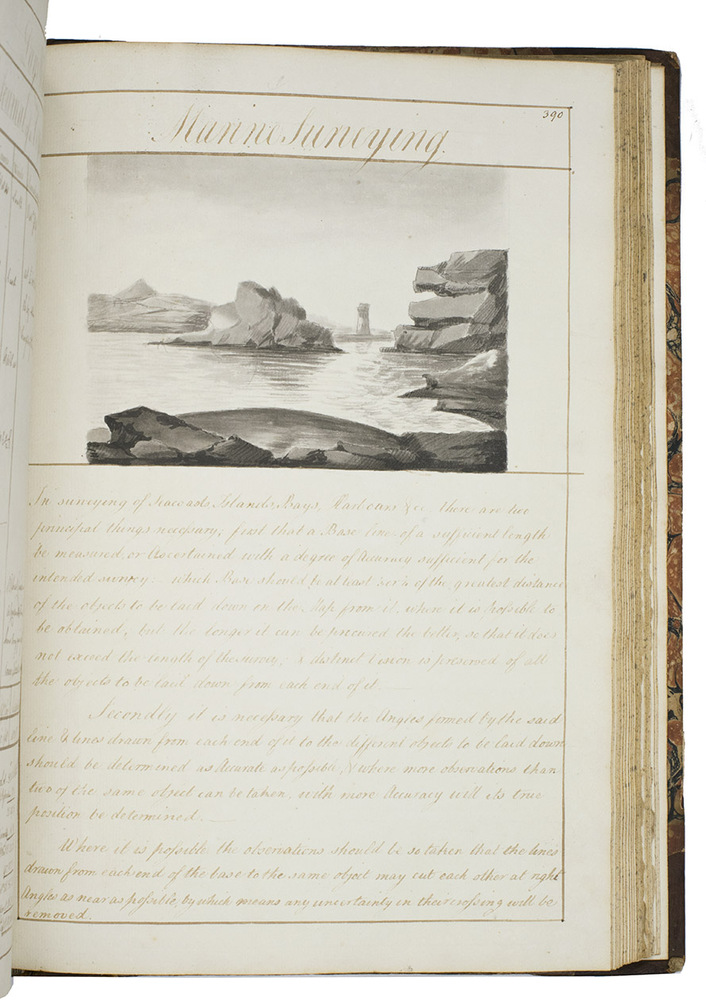 390
Marine Surveying.
In surveying of Seacoasts, Islands, Bays, Harbours &c there are two
principal things necessary, first that a Base line of a sufficient length
be measured, or Ascertained with a degree of Accuracy sufficient for the
intended survey: which Base should be at least of the greatest distance
of the objects to be laid down on the Map from it, where it is possible to
be obtained, but the longer it can be procured the better, so that it does
not exceed the length of the survey, & distinct Vision is preserved of all
the objects to be laid down from each end of it.
Secondly it is necessary that the Angles formed by the said
line & lines drawn from each end of it to the different objects to be laid down
should be determined as Accurate as possible, & where more observations than
two of the same object can be taken, with more Accuracy will its true
position be determined.
Where it is possible the observations should be so taken that the lines
drawn from each end of the base to the same object may cut each other at right
Angles as near as possible, by which means any uncertainty in their crossing will be
removed.